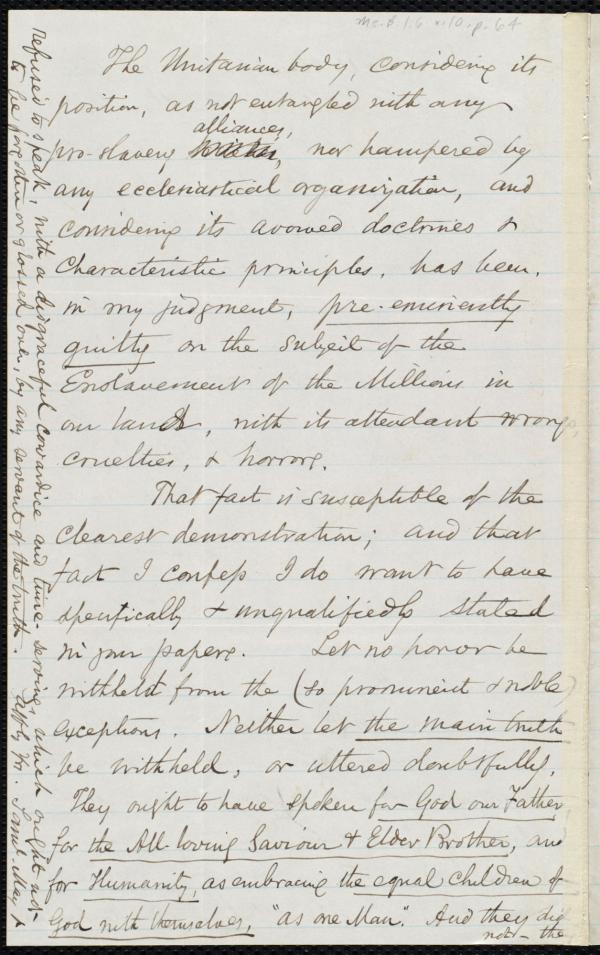 Ms. B. 1.6 v.10, p. 64
The Unitarian body, considering its
position, as not entangled with any
alliances,
pro-slavery nor hampered by
any ecclesiastical organization, and
considering its avowed doctrines &
characteristic principles, has been,
in my judgment, pre-eminently
guilty on the subject of the
Enslavement of the Millions in
our land, with its attendant wrongs,
cruelties, & horrors.
That fact is susceptible of the
clearest demonstration; and that
fact I confess I do want to have
specifically & unqualifiedly stated
in your papers. Let no honor be
withheld from the (so prominent & noble)
exceptions. Neither let the main truth
be withheld, or uttered doubtfully.
They ought to have spoken for God our Father,
for the All-loving Saviour & Elder Brother, and
for Humanity, as embracing the equal children of
God with themselves, "as one Man". And they did
not – the
refused to speak, with a disgraceful cowardice and time-serving, which ought not
to be forgotten or glossed over, by any servant of the truth. Saml. May Jr